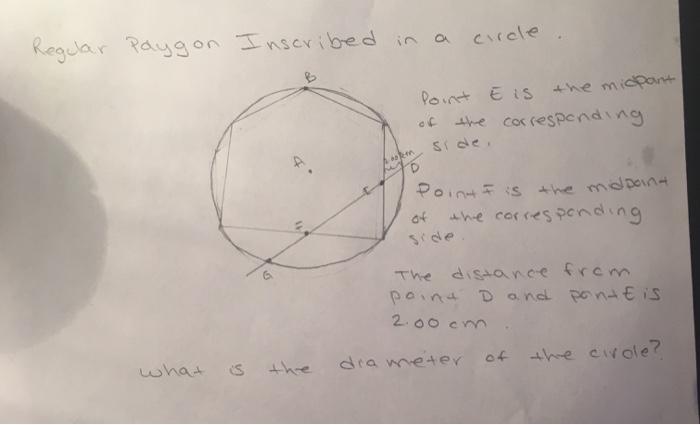 Regular Paygon Inscribed in a circle.
B
Point E is the midpant
of the corresponding
side.
A
2.00cm
D
E
Point F is the midpoint
of the corresponding
side.
E
G
The distance from
point D and pont E is
2.00 cm.
What is the diameter of the circle?